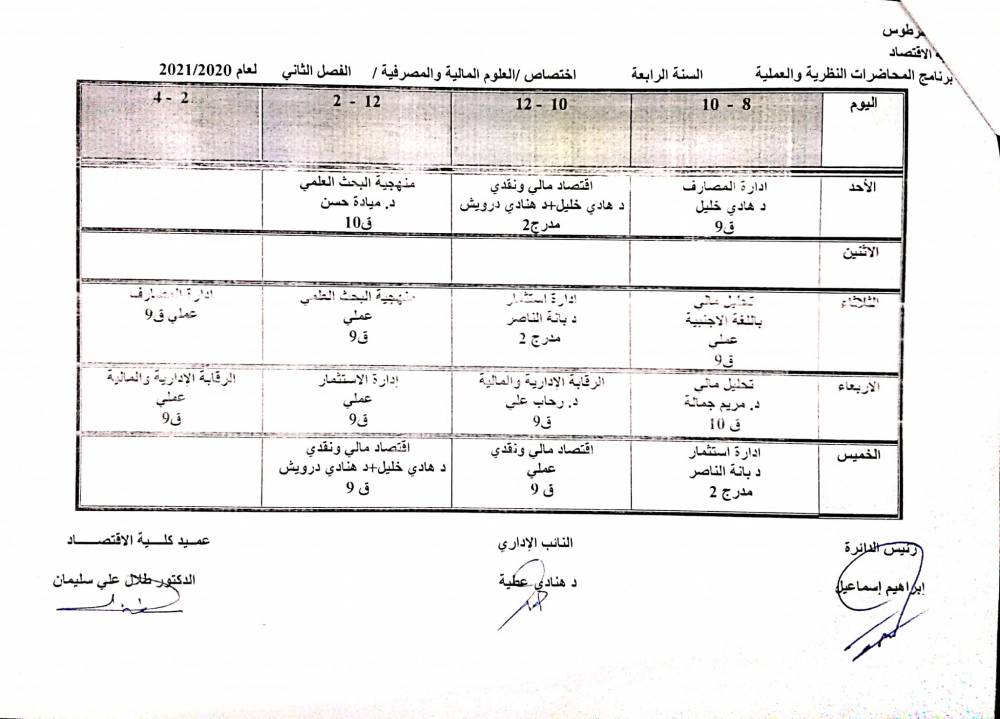 طرطوس
الاقتصاد
برنامج المحاضرات النظرية والعملية السنة الرابعة اختصاص /العلوم المالية والمصرفية / الفصل الثاني لعام 2021/2020
اليوم 8 - 10 10 - 12 12 - 2 2 - 4
الأحد
ادارة المصارف
د هادي خليل
ق9
اقتصاد مالي ونقدي
د هادي خليل+د هنادي درويش
مدرج2
منهجية البحث العلمي
د. ميادة حسن
ق10
الاثنين
الثلاثاء
تحليل مالي
باللغة الاجنبية
عملي
ق9
ادارة استثمار
د بانة الناصر
مدرج 2
منهجية البحث العلمي
عملي
ق9
ادارة المصارف
عملي ق9
الاربعاء
تحليل مالي
د. مريم جمالة
ق 10
الرقابة الادارية والمالية
د. رحاب علي
ق9
إدارة الاستثمار
عملي
ق9
الرقابة الادارية والمالية
عملي
ق9
الخميس
ادارة استثمار
د بانة الناصر
مدرج 2
اقتصاد مالي ونقدي
عملي
ق 9
اقتصاد مالي ونقدي
د هادي خليل+د هنادي درويش
ق 9
رئيس الدائرة النائب الإداري عميد كلية الاقتصاد
إبراهيم إسماعيل د هنادي عطية الدكتور طلال علي سليمان